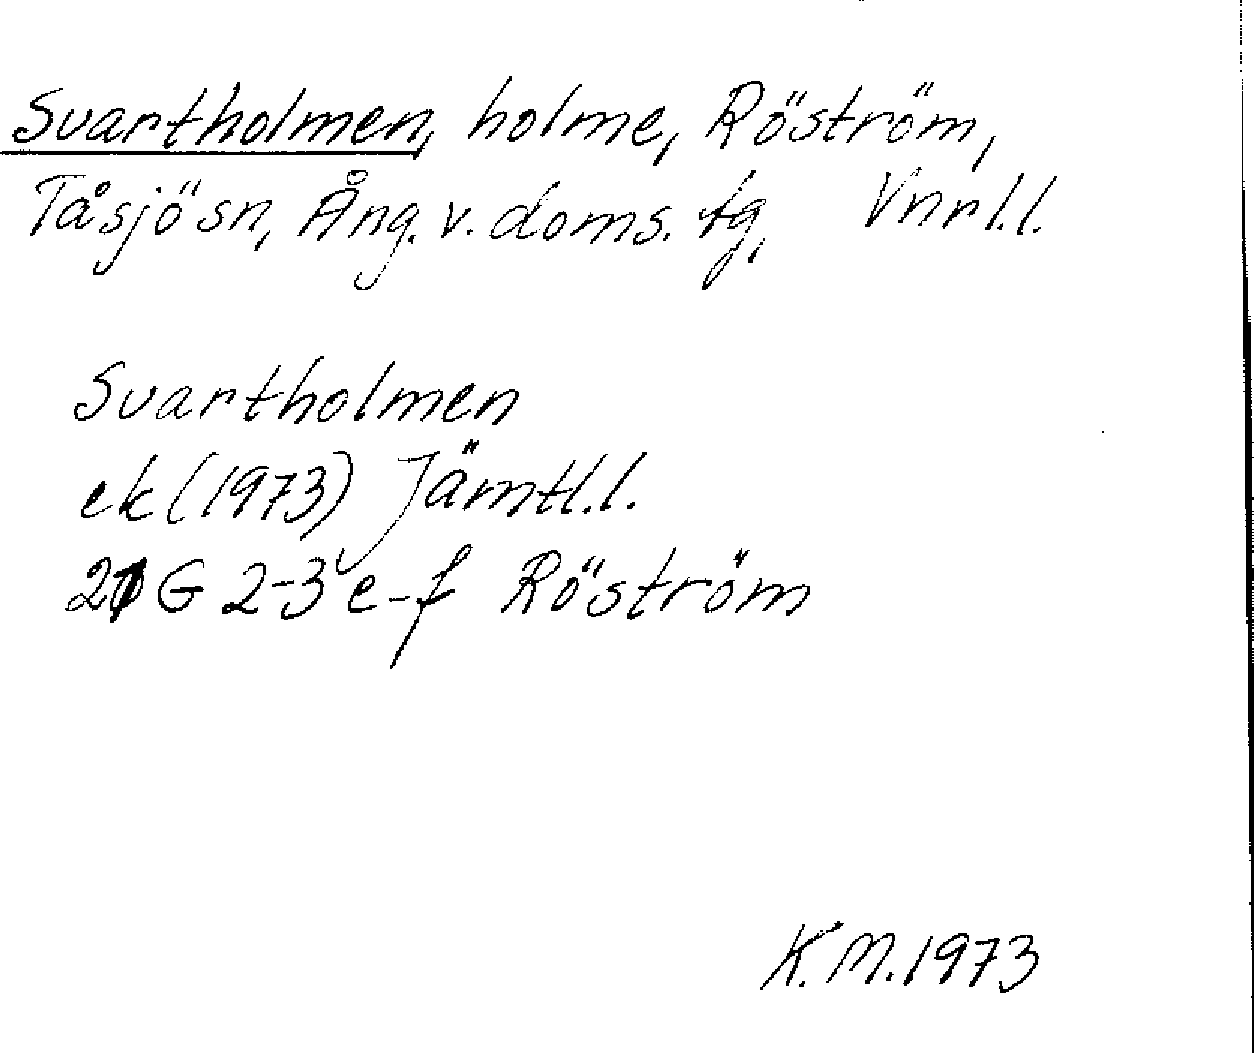 Svartholmen, holme, Röström,
Tåsjö sn, Ång. v. doms. tg, Vnrl.l.
Svartholmen
ek (1973) Jämtl.l.
21 G 2-3 e-f Röström
K.M. 1973